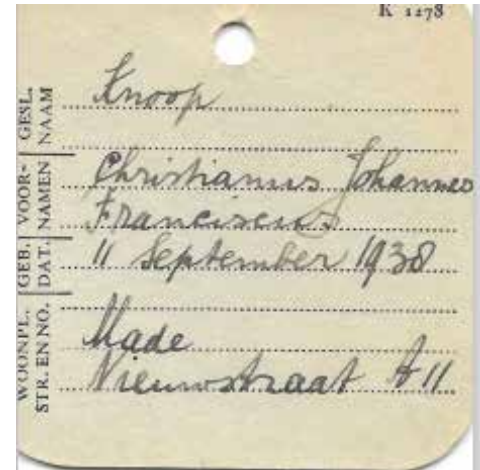 K 1278
GESL. NAAM
Knoop
VOOR- NAMEN
Christianus Johannes
Franciscus
GEB. DAT.
11 September 1938
WOONPL. STR. EN NO.
Made
Nieuwstraat A 11